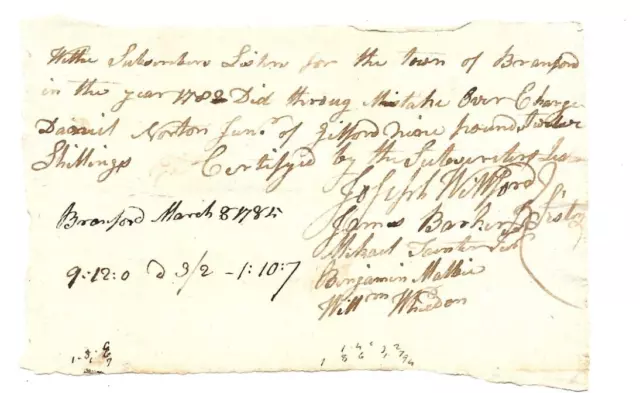 We the Subscribers Listers for the town of Branford
in the year 1782 Did throug Mistake Over Charge
Daniel Norton Junr of Gilford nine pound twelve
Shillings Certifyed by the Subscribers
Joseph Wilford
James Barker Listers
Mikael Taintor
Benjamin Maltbie
Willm Whedon
Branford March 8 1784
9:12:0 d 3/2 - 1:10:7